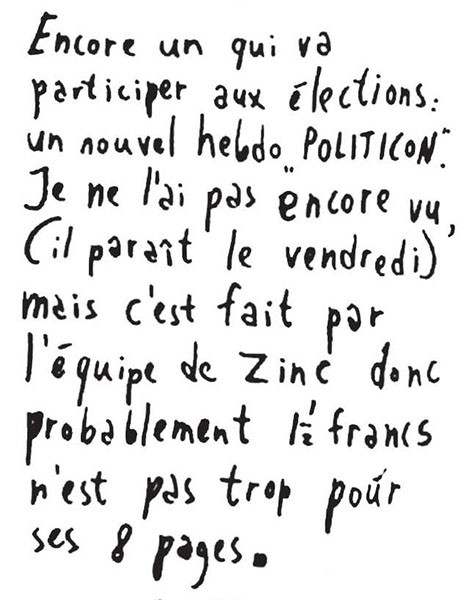 Encore un qui va
participer aux élections:
un nouvel hebdo "POLITICON".
Je ne l'ai pas encore vu,
(il paraît le vendredi)
mais c'est fait par
l'équipe de Zinc donc
probablement 1½ francs
n'est pas trop pour
ses 8 pages.